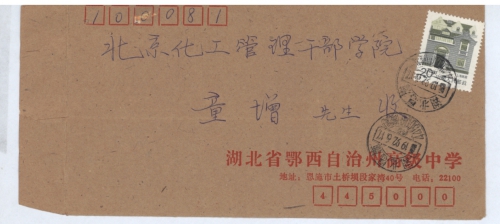 100081
北京化工管理干部学院
童增 先生 收
湖北省鄂西自治州高级中学
地址：恩施市土桥坝段家湾40号 电话：22100
445000